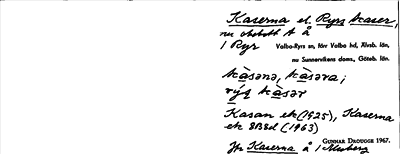 Kaserna el. Ryrs Kaser,
nu obebott t å
1 Ryr Valbo-Ryrs sn, förr Valbo hd, Älvsb. län,
nu Sunnervikens doms., Göteb. län.
kàsəna, kàsəra;
rýs kàsər
Kasan ek (1925), Kaserna
ek 8B8d (1963)
GUNNAR DROUGGE 1967.
Jfr Kaserna å 1